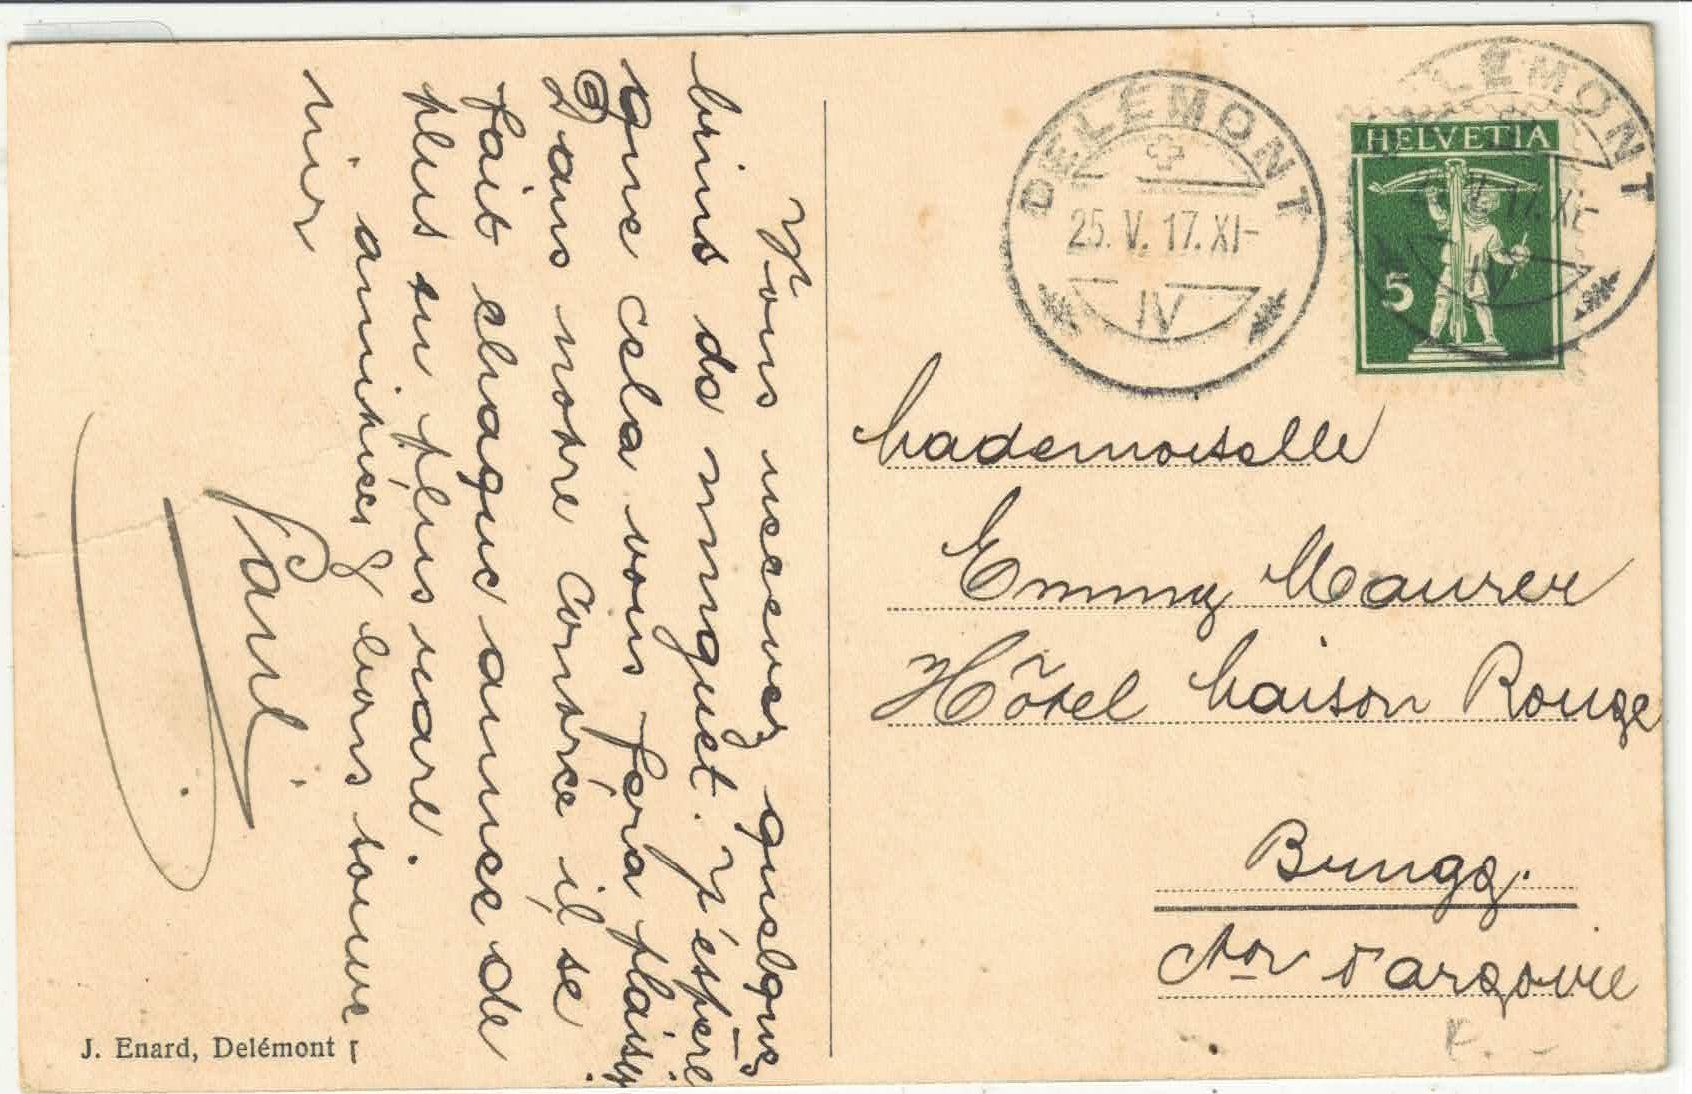 Vous recevez quelques
brins de muguet. J'éspère
que cela vous fera plaisir
Dans notre Contrée il se
fait chaque année de
plus en plus rare.
amitiées & bons souve
nir
Paul
J. Enard, Delémont
DELEMONT
25. V. 17. XI-
IV
DELEMONT
V. 17. XI-
IV
HELVETIA
5
Mademoiselle
Emmy Maurer
Hôtel Maison Rouge
Brugg.
Cton d'argovie